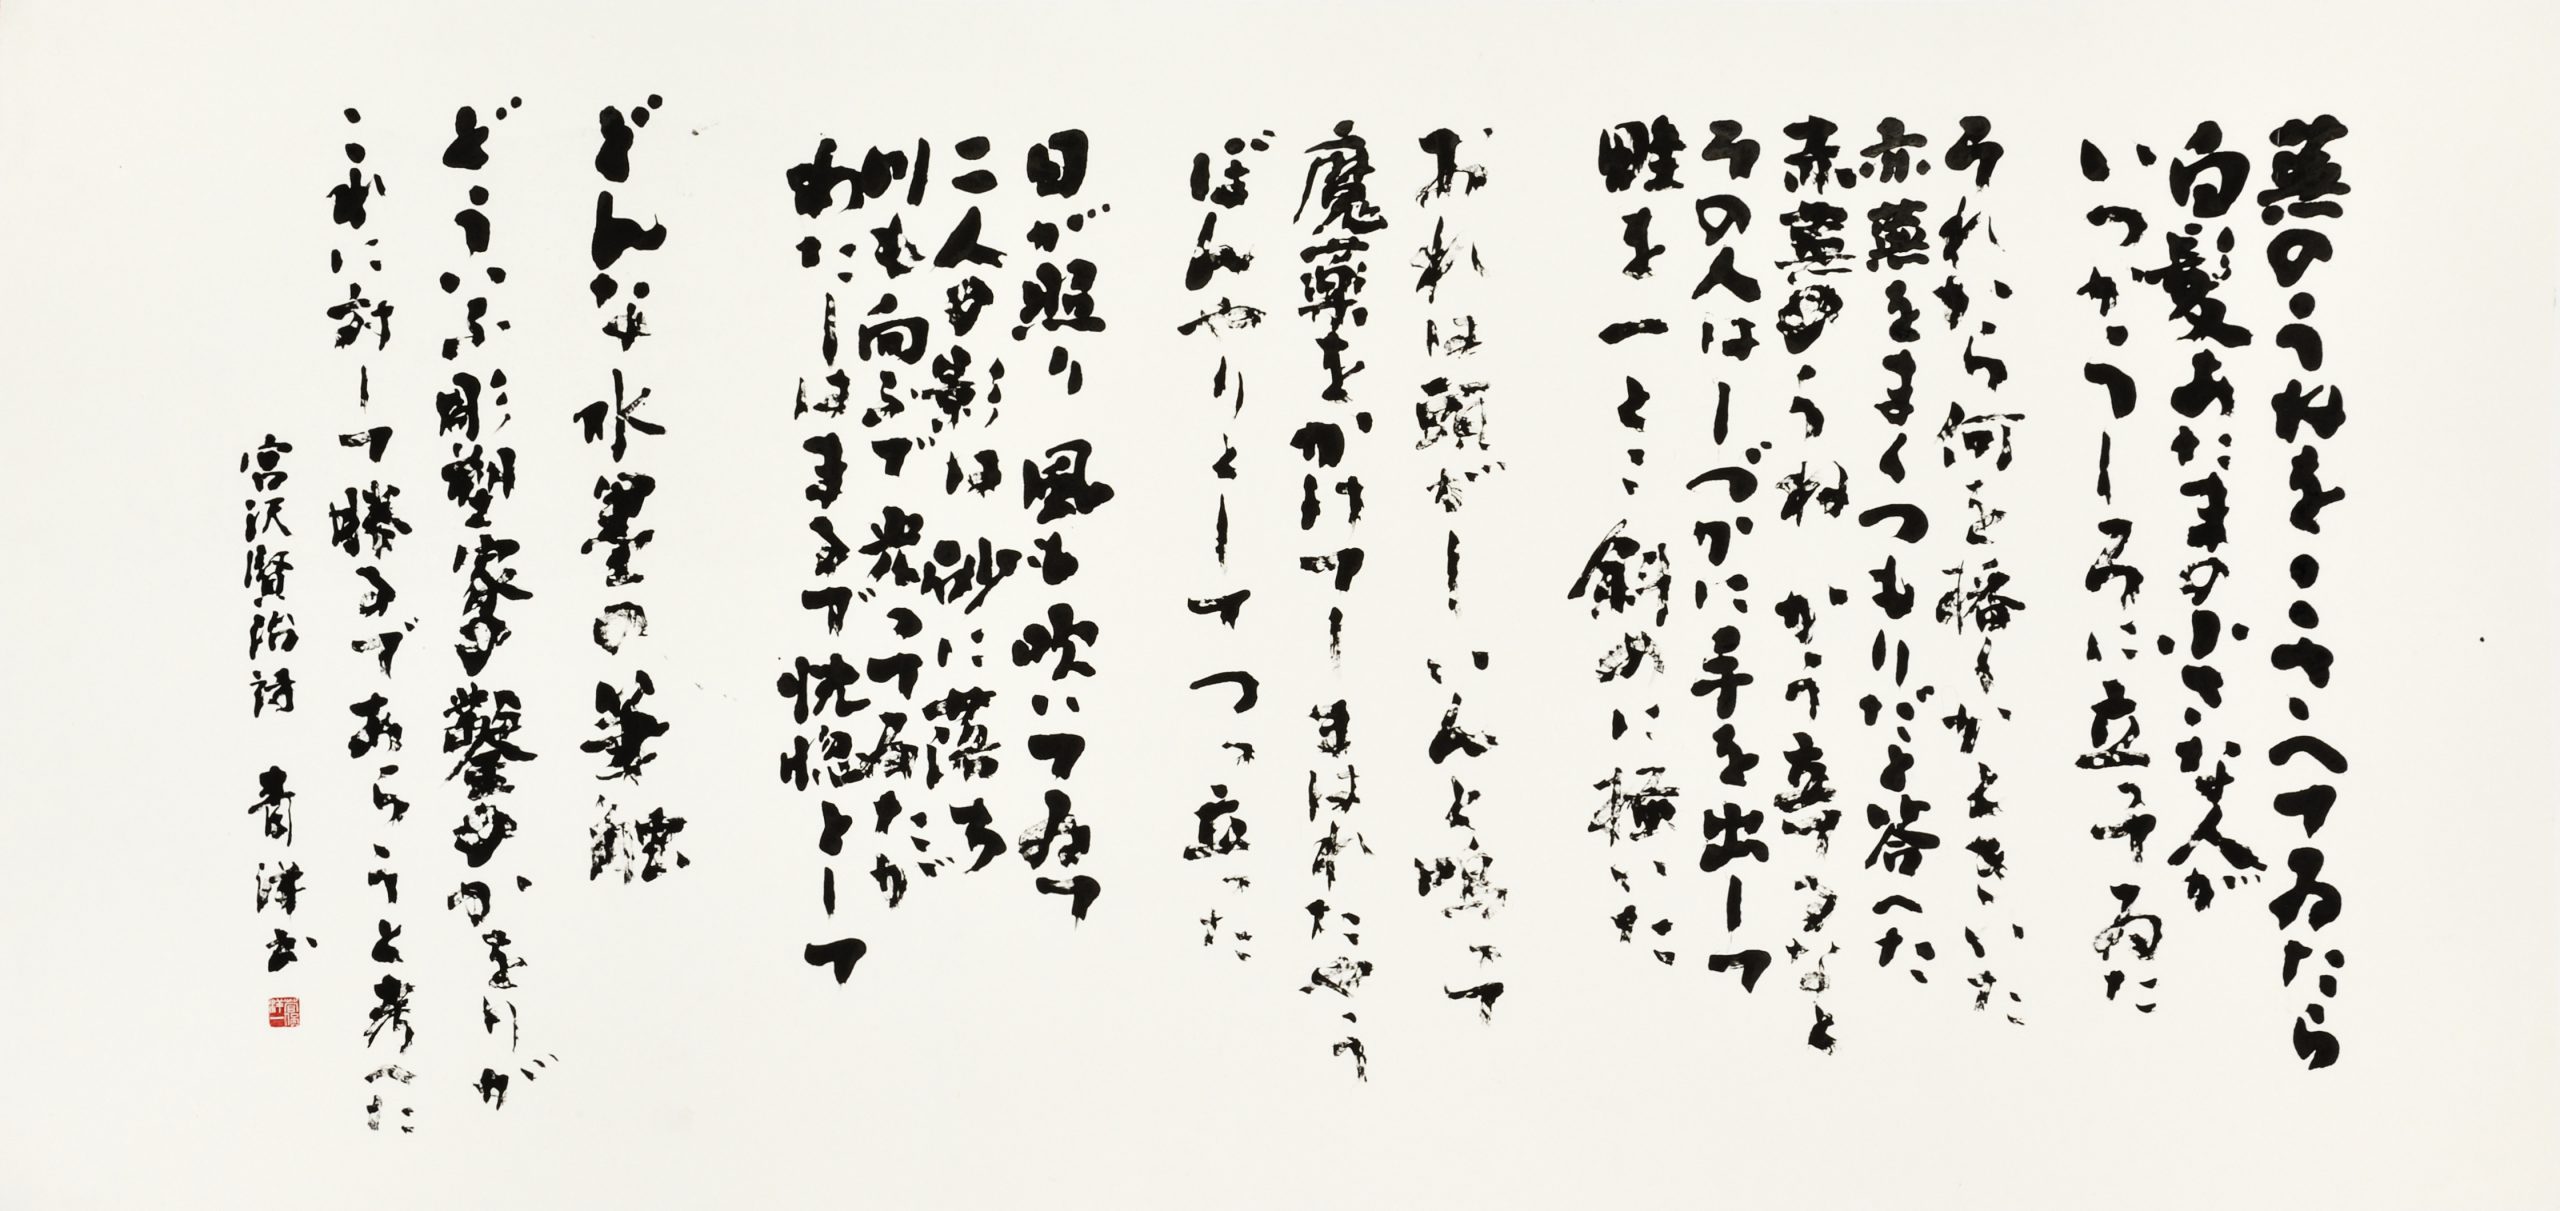 蕪のうねをこさへてゐたら
白髪あたまの小さな人が
いつかうしろに立ってゐた
それから何を播くかときいた
赤蕪をまくつもりだと答へた
赤蕪のうね かう立てるなと
その人はしづかに手を出して
畦を一とこ斜めに掻いた
おれは頭がしいんと鳴って
魔薬をかけてしまはれたやう
ぼんやりとしてつっ立った
日が照り 風も吹いてゐて
二人の影は砂に落ち
川も向ふで光ってゐたが
わたしはまるで恍惚として
どんな水墨の筆触
どういふ彫塑家の鑿のかをりが
これに対して勝るであらうと考へた
宮沢賢治詩 青洋書